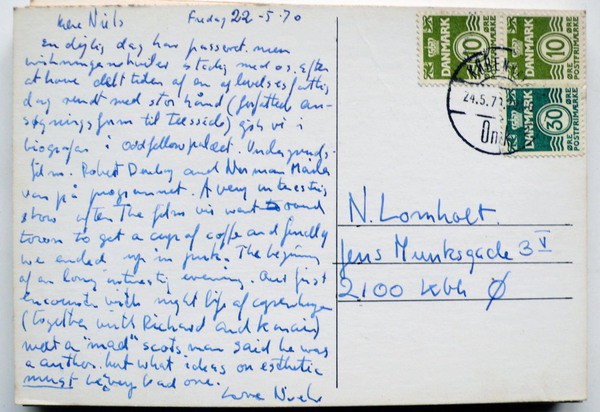 Kære Niels Fredag 22-5-70
En dejlig dag har passeret. men
virkningen stadig med os. efter
at have delt tiden af en
dag rundt med stor hånd (
form til teesside) gik vi i
biografen i oddfellowpalæet. Undergrunds-
film. Robert and Norman
var på programmet. A very interesting
show after The film we went round
town to get a cup of coffe and finally
we ended up in The beginning
of an long evening. Our first
encounter with night life of copenhagen
(together with Richard and
met a "mad" scots man said he was
a author. but what ideas on esthetic
must be very bad one.
Love
N. Lomholt.
Jens Munksgade 3 V
2100 Kbh Ø
10 ØRE
DANMARK
POSTFRIMÆRKE
10 ØRE
DANMARK
POSTFRIMÆRKE
30 ØRE
DANMARK
POSTFRIMÆRKE
24.5.70